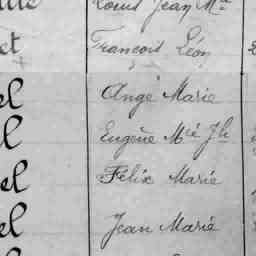 Louis Jean Mie
et François Léon
el Ange Marie
el Eugène Mie Jh
el Félix Marie
el Jean Marie